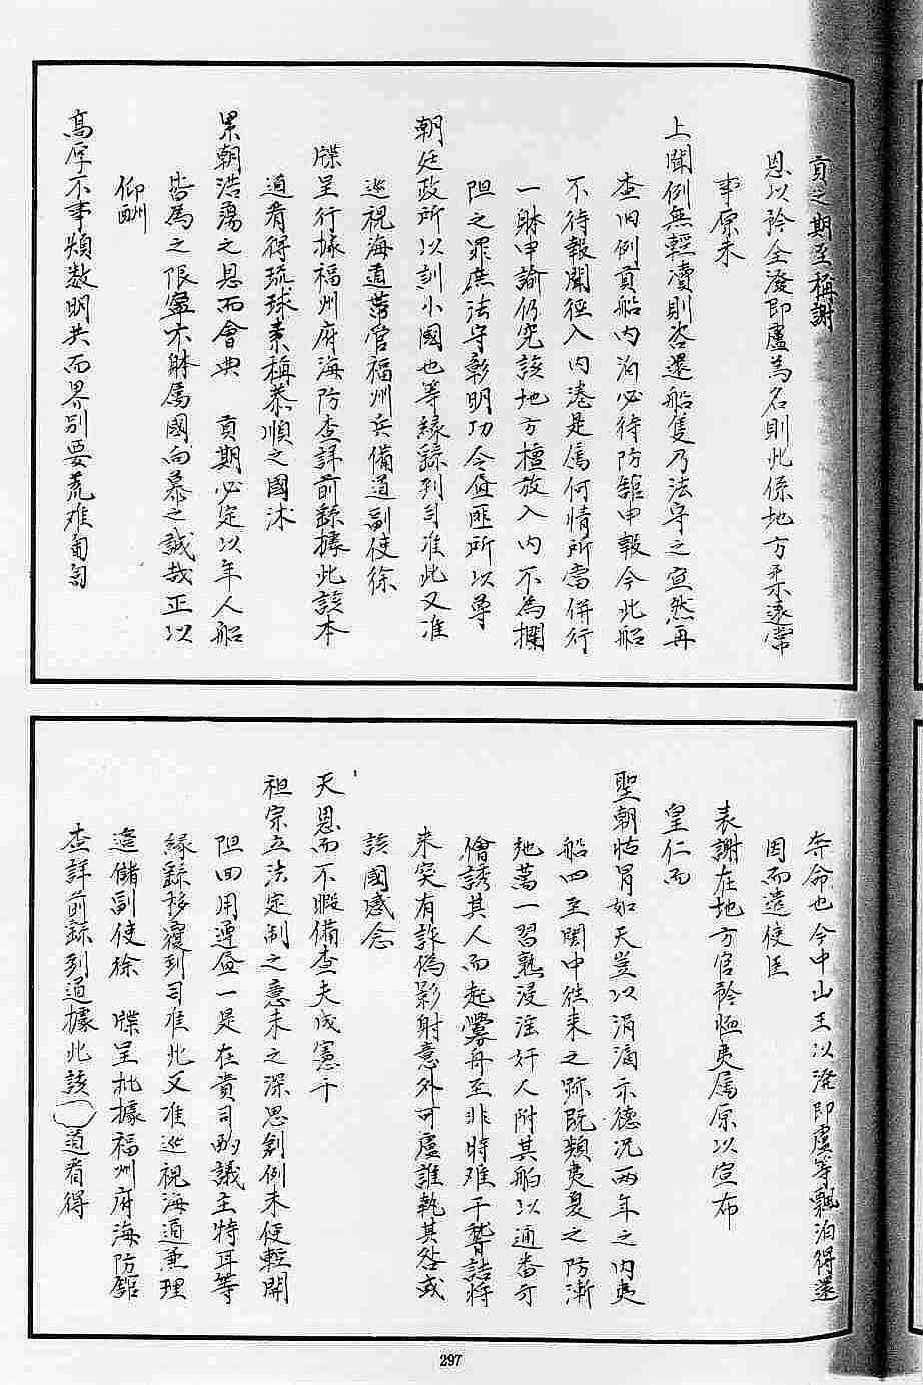 貢之期至稱謝
恩以矜全潑即盧為名則此係地方柔遠常
事原未
上聞例無輕瀆則咨還船隻乃法守之宜然再
查旧例貢船内泊必待防舘申報今此船
不待報聞徑入内港是属何情所當併行
一體申諭仍究該地方擅放入内不為攔
阻之罪庶法守彰明功令昼匪所以尊
朝廷政所以訓小國也等縁錄到司准此又准
巡視海道帯管福州兵備道副使徐
牒呈行據福州府海防查詳前錄據此該本
道看得琉球素稱恭順之國沐
累朝浩蕩之恩而會典　貢期必定以年人船
皆為之限豈不體属國向慕之誠哉正以
仰酬
高厚不事煩数明共而界別要荒难匍匐
奔命也今中山王以潑即盧等飄泊得還
因而遣使匡
表謝在地方官矜恤夷属原以宣布
皇仁而
聖朝怙冒如天豈以涓滴示德况两年之内夷
船四至閩中徃来之跡既頻夷夏之防漸
弛萬一習熟浸淫奸人附其舶以通番奇
繪誘其人而起釁舟至非時难于詰將
来突有詐偽影射意外可慮誰執其咎或
該國感念
天恩而不暇備查夫成憲干
祖宗立法定制之意未之深思創例未便輕開
阻回用遵昼一是在貴司酌議主特耳等
縁錄移覆到司准此又准巡視海道兼理
邉儲副使徐　牒呈批據福州府海防舘
查詳前錄到道據此該（一）道看得
297